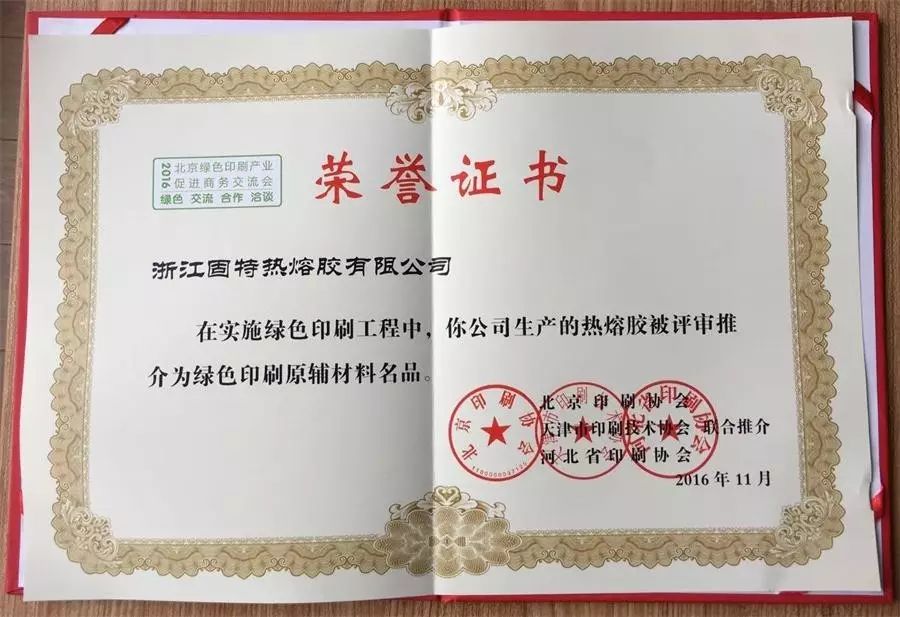 2016
北京绿色印刷产业
促进商务交流会
绿色 交流 合作 洽谈
荣誉证书
浙江固特热熔胶有限公司
在实施绿色印刷工程中，你公司生产的热熔胶被评审推
介为绿色印刷原辅材料名品。
北京印刷协会
天津市印刷技术协会 联合推介
河北省印刷协会
2016年11月
北京印刷协会
河北省印刷协会